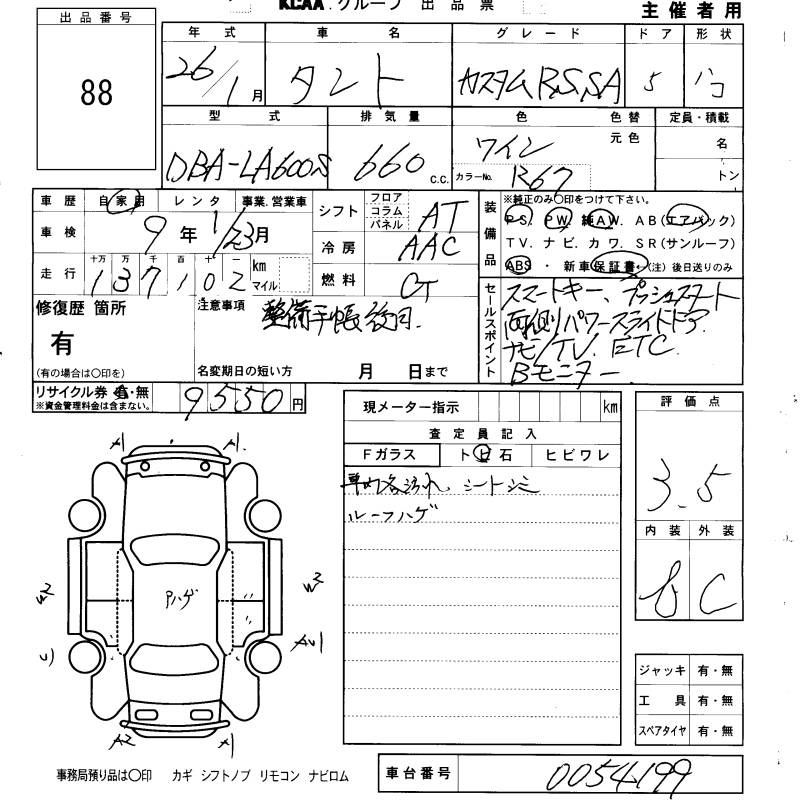 KCAA.グループ 出品票
主催者用
出品番号
88
年式 車名 グレード ドア 形状
26/1月 タント カスタムRS,SA 5 ハコ
型式 排気量 色 色替 定員・積載
DBA-LA600S 660 c.c. ワイン 元色 名
カラーNo. R67 トン
車歴 自家用 レンタ 事業、営業車
車検 9年1/23月
走行 十万 万 千 百 十 一
137102 km マイル
シフト フロア コラム パネル AT
冷房 AAC
燃料
装備品
※純正のみ〇印をつけて下さい。
PS. PW. 純AW. AB(エアバック)
TV. ナビ. カワ. SR(サンルーフ)
ABS ・ 新車保証書←(注) 後日送りのみ
修復歴 箇所
有
(有の場合は〇印を)
注意事項
整備手帳
名変期日の短い方 月 日まで
セールスポイント
スマートキー、プッシュスタート
両側パワースライドドア
ナビ/TV. ETC
Bモニター
リサイクル券 有・無
※資金管理料金は含まない。
9550円
現メーター指示 km
査定員記入
Fガラス ト ビ 石 ヒビワレ
シートシミ
ルーフハゲ
評価点
3.5
内装 外装
C
A1 A1
W2 W2
Pハゲ
U1
A2 U1
ジャッキ 有・無
工具 有・無
スペアタイヤ 有・無
事務局預り品は〇印 カギ シフトノブ リモコン ナビロム
車台番号 0054199